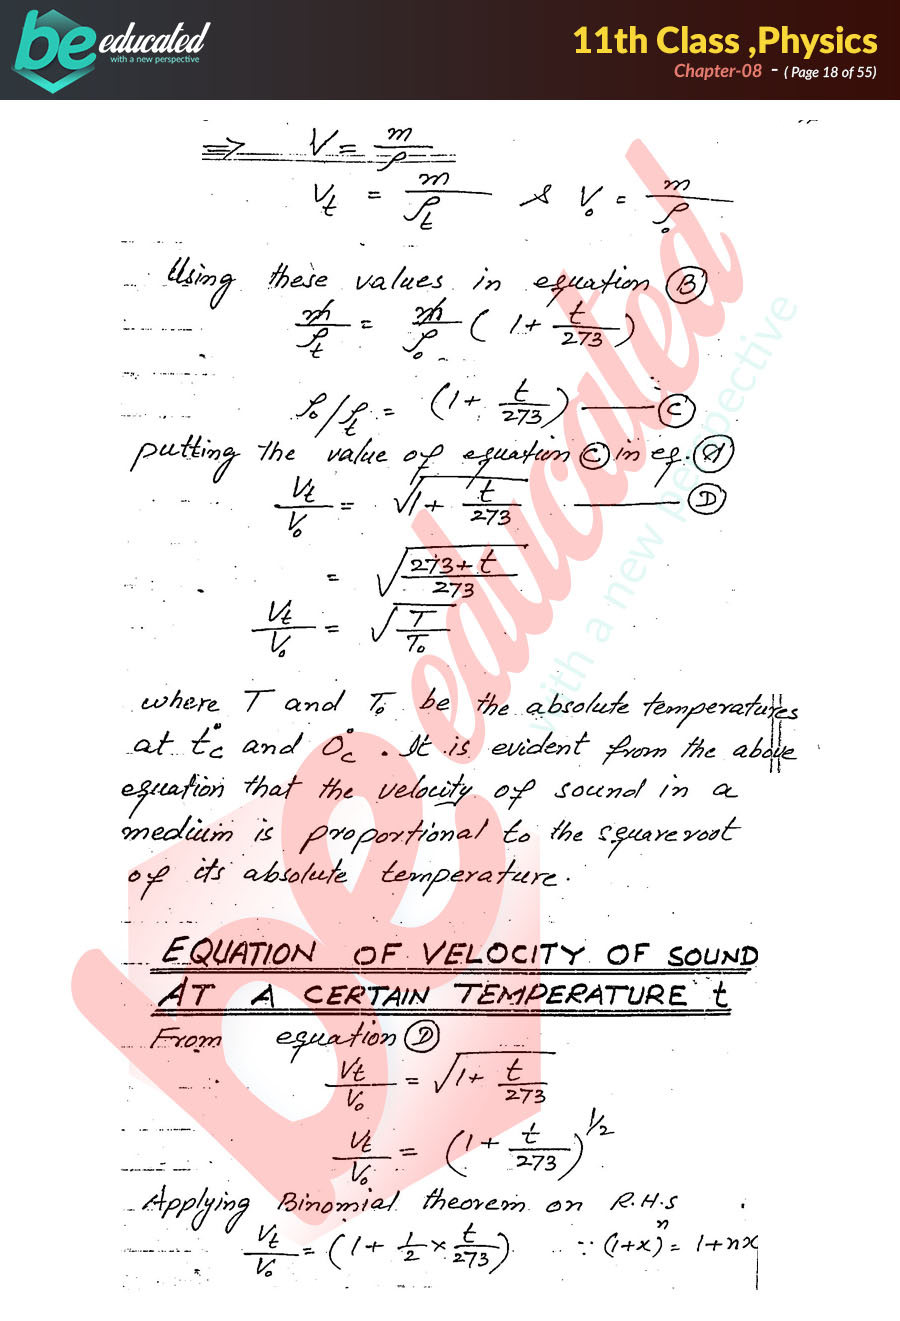 be educated
with a new perspective
11th Class ,Physics
Chapter-08 - ( Page 18 of 55)
⇒ V = m/ρ
V_t = m/ρ_t & V_o = m/ρ_o
Using these values in equation (B)
m/ρ_t = m/ρ_o ( 1 + t/273 )
ρ_o/ρ_t = (1 + t/273) —— (C)
putting the value of equation (C) in eq. (A)
V_t/V_o = √(1 + t/273) —— (D)
= √((273 + t)/273)
V_t/V_o = √(T/T_o)
where T and T_o be the absolute temperatures
at t°C and 0°C . It is evident from the above
equation that the velocity of sound in a
medium is proportional to the square root
of its absolute temperature.
EQUATION OF VELOCITY OF SOUND
AT A CERTAIN TEMPERATURE t
From equation (D)
V_t/V_o = √(1 + t/273)
V_t/V_o = (1 + t/273)^1/2
Applying Binomial theorem on R.H.S
V_t/V_o = (1 + 1/2 × t/273) ∵ (1+x)^n = 1+nx
be educated
with a new perspective